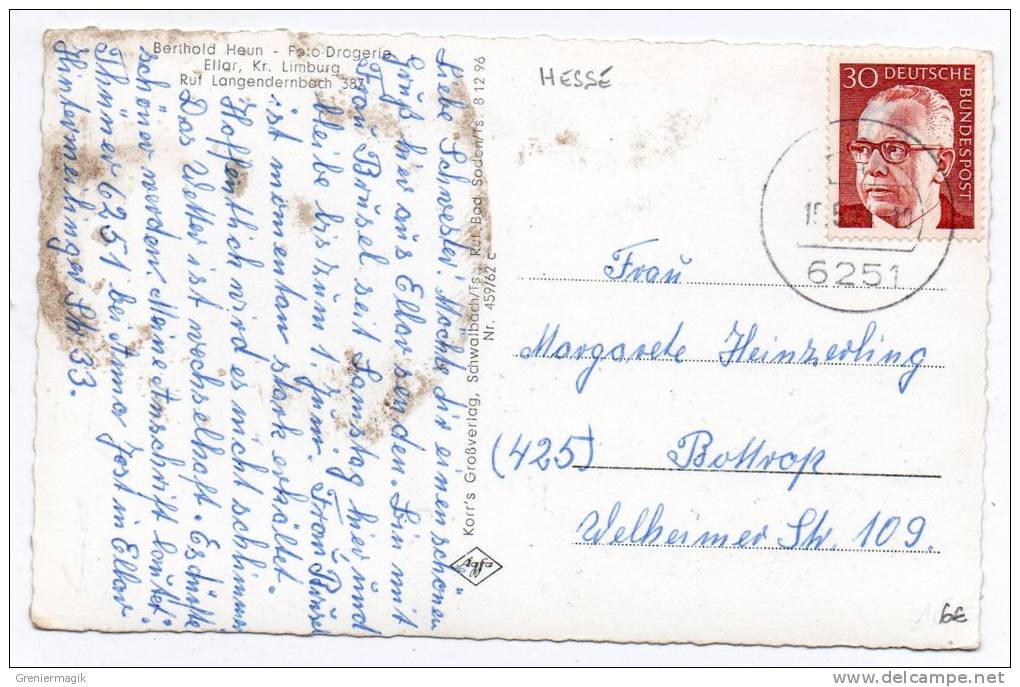 Berthold Heun - Foto-Drogerie
Ellar, Kr. Limburg
Ruf Langendernbach 387
Liebe Schwester! Möchte dir einen schönen
Gruß hier aus Ellar senden. Bin mit
Frau Brüsel seit Samstag hier und
bleibe bis zum 1. Juni. Frau
ist momentan stark erkältet.
Hoffentlich wird es nicht schlimmer
Das Wetter ist wechselhaft. Es dürfte
schöner werden. Meine Anschrift lautet.
Thüner 6251 bei Anna Jost in Ellar
Hintermeilinger Str. 33.
Korr's Großverlag, Schwalbach/Ts., Ruf: Bad Soden/Ts. 8 12 96
Nr. 459/62 c
Agfa
HESSE
30 DEUTSCHE
BUNDESPOST
6251
Frau
Margarete Heinzerling
(425) Bottrop
Welheimer Str. 109.
6€
© Greniermagik
www.delcampe.net